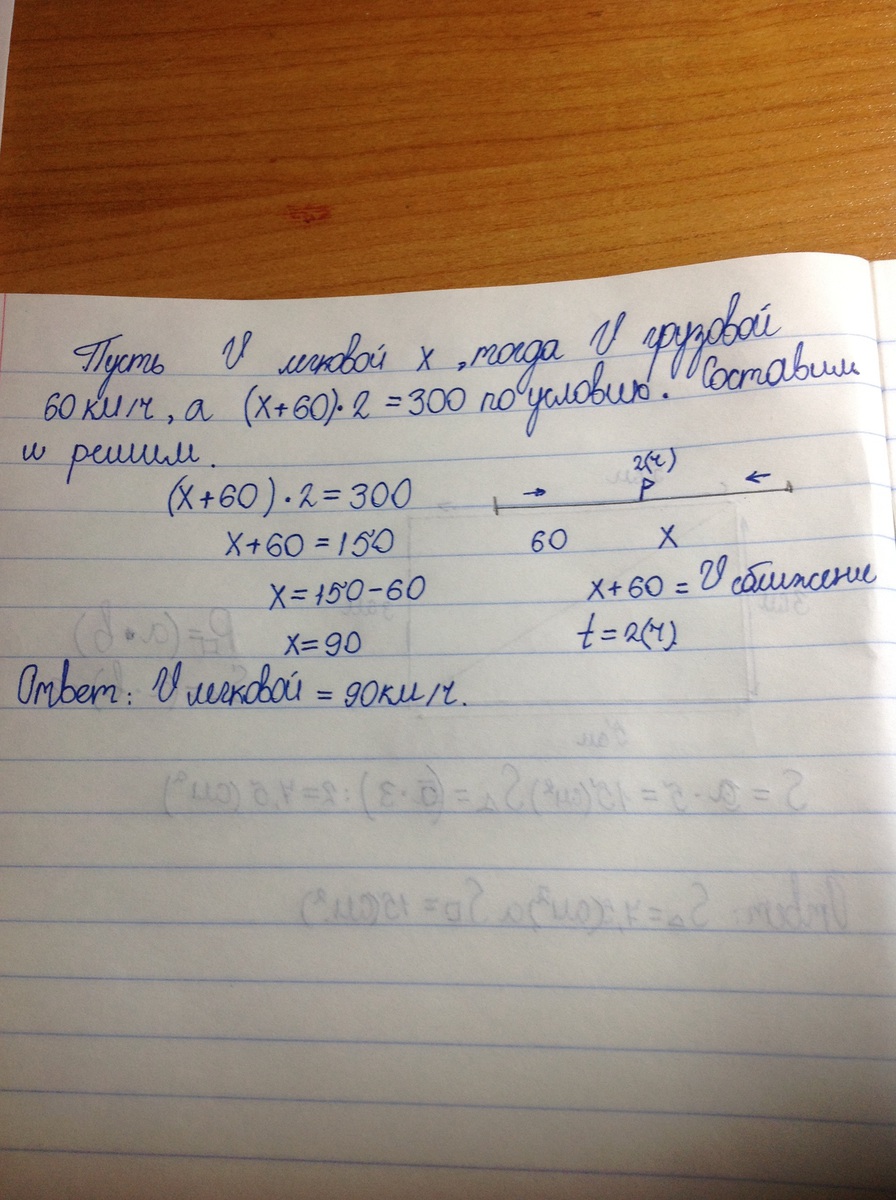 Пусть V легковой x, тогда V грузовой
60 км/ч, а (x+60)·2=300 по условию. Составим
и решим.
(x+60)·2=300
x+60=150
x=150-60
x=90
2(ч)
60 x
x+60=V сближение
t=2(ч)
Ответ: V легковой = 90км/ч.